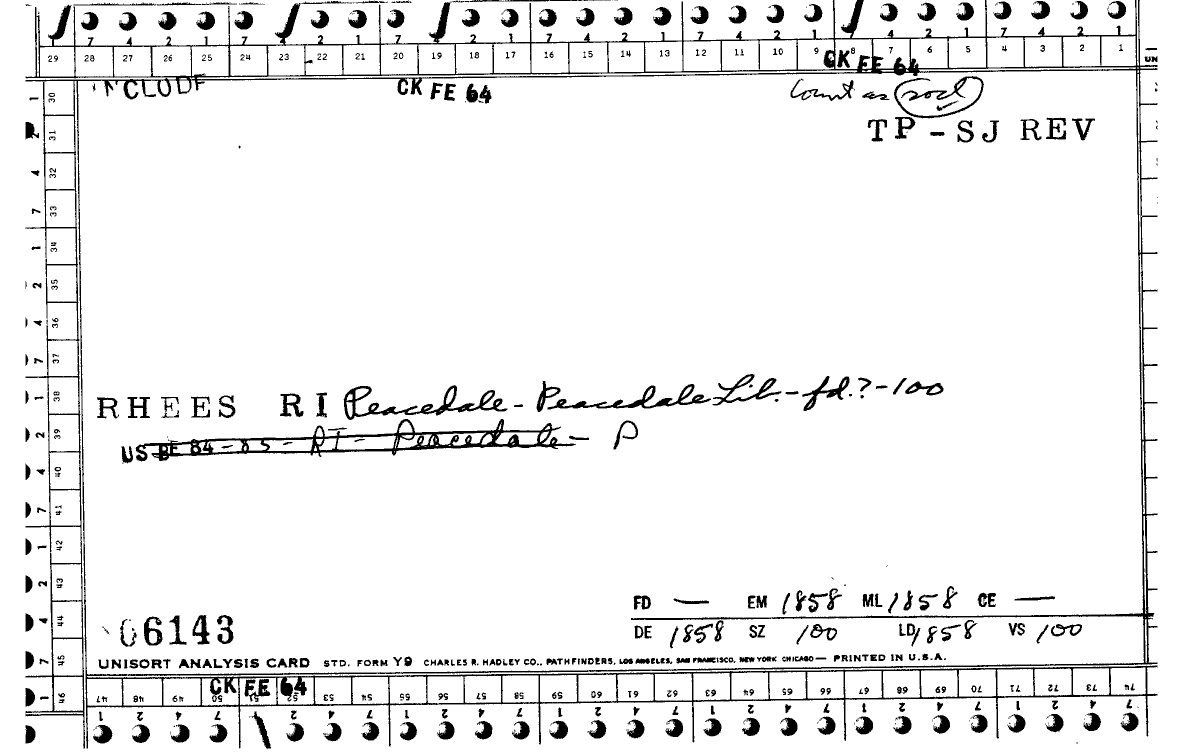 7 4 2 1 7 4 2 1 7 4 2 1 7 4 2 1 7 4 2 1 7 4 2 1 7 4 2 1
29 28 27 26 25 24 23 22 21 20 19 18 17 16 15 14 13 12 11 10 9 8 7 6 5 4 3 2 1
CK FE 64
UN
INCLUDE CK FE 64 Count as socl
TP-SJ REV
1 30
2 31
4 32
7 33
1 34
2 35
4 36
7 37
1 38
2 39
4 40
7 41
1 42
2 43
4 44
7 45
1 46
RHEES RI Peacedale - Peacedale Lib. - fd.? - 100
US BE 84-85 - RI - Peacedale - P
FD — EM 1858 ML 1858 CE —
06143 DE 1858 SZ 100 LD 1858 VS 100
UNISORT ANALYSIS CARD STD. FORM Y9 CHARLES R. HADLEY CO., PATHFINDERS, LOS ANGELES, SAN FRANCISCO, NEW YORK CHICAGO — PRINTED IN U.S.A.
CK FE 64
47 48 49 50 51 52 53 54 55 56 57 58 59 60 61 62 63 64 65 66 67 68 69 70 71 72 73 74
1 2 4 7 1 2 4 7 1 2 4 7 1 2 4 7 1 2 4 7 1 2 4 7 1 2 4 7